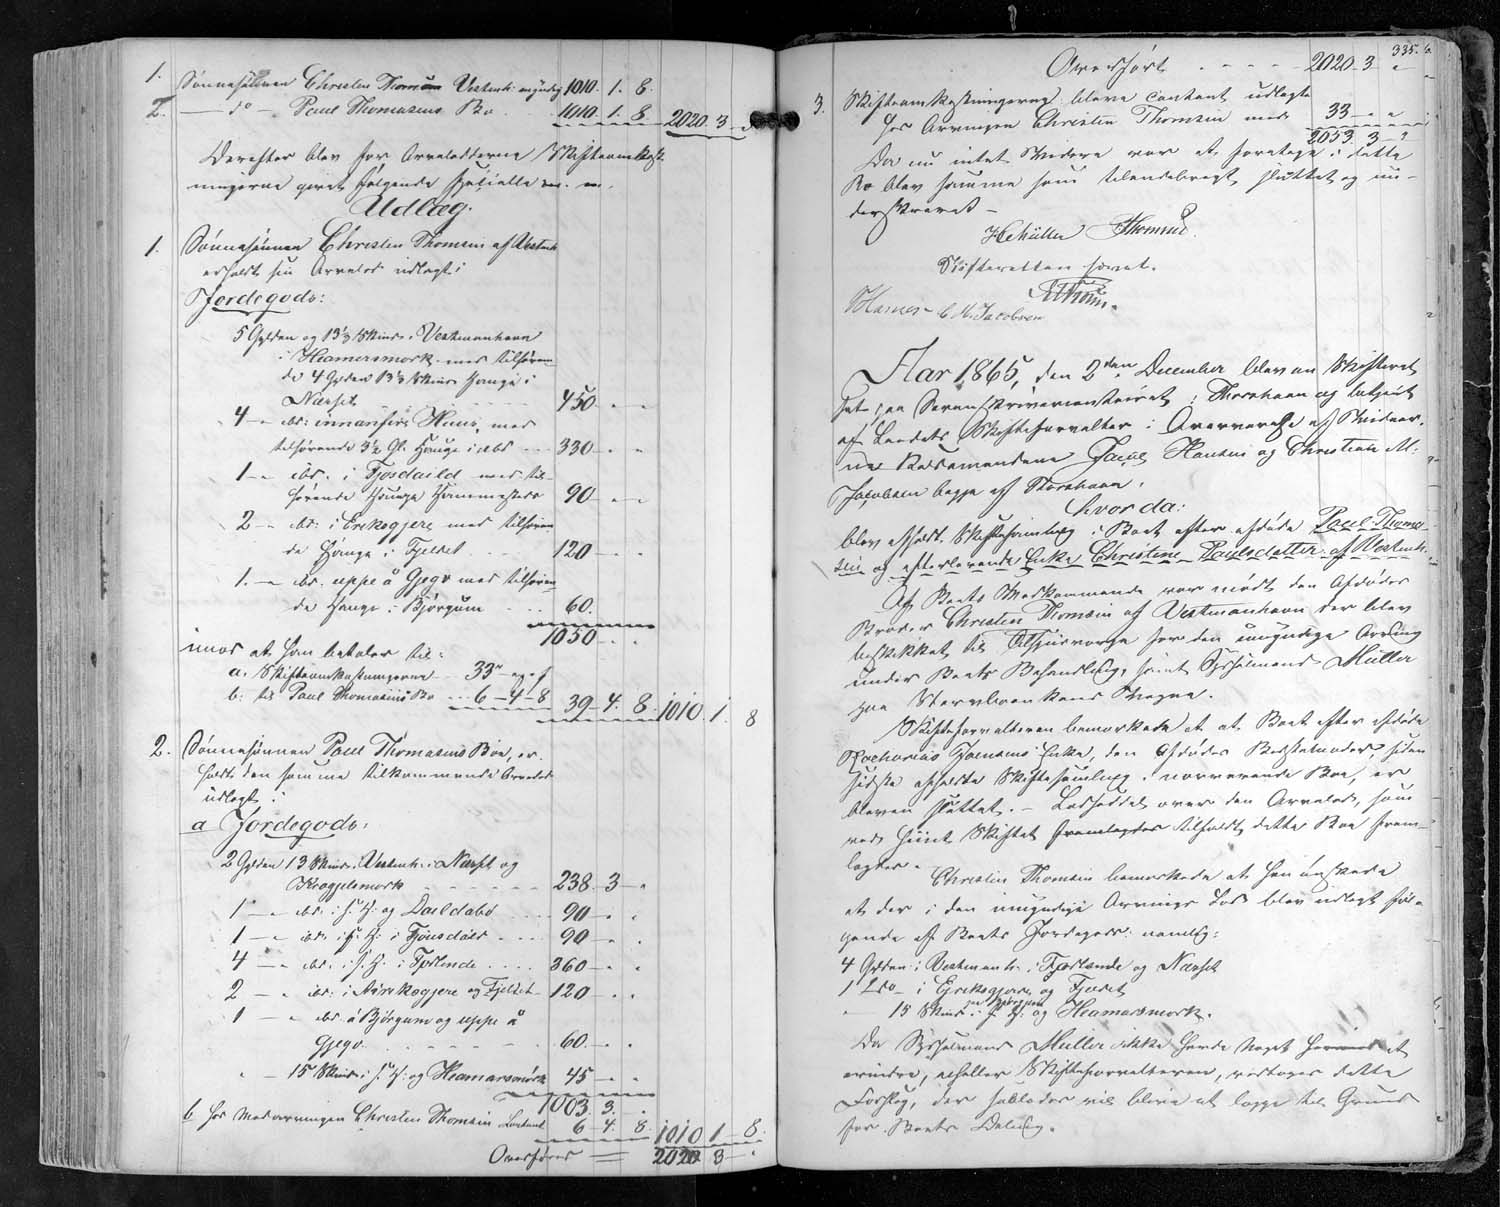 1. Sønnesønnen Christen Thomsen Vestmh: myndig 1010. 1. 8.
2. — do — Poul Thomasens Bo . . 1010. 1. 8. 2020. 3 —
Derefter blev for Arvelodderne, Skifteomkost-
ningerne gjort følgende specielle m. m.
Udlæg.
1. Sønnesønnen Christen Thomsen af Vestmh
erholdt sin Arvelod udlagt i
Jordegods:
5 Gylden og 13⅓ Skind i Vestmanhavn
i Heamersmork med tilhøren-
de 4 Gylden 13⅓ Skind Hauge i
Næset 450 — —
4 — do: innanfirir Huus, med
tilhørende 3½ Gl. Hauge i do . . . 330 — —
1 — do. i Fjosdaild med til-
hørende Hauge Hammestere 90 — —
2 — do: i Erikagjere med tilhøren-
de Hauge i Fjeldet . . . 120 — —
1. — do. uppe å Gjegv med tilhøren-
de Hauge i Bjørgum . . . 60.
1050 — —
imod at han betaler til:
a. Skifteomkostningerne — 33
b. til Poul Thomasens Bo . . . 6 — 4 — 8 39. 4. 8. 1010. 1. 8
2. Sønnesønnen Poul Thomasens Boe, er-
holdt den samme tilkommende Arvelod
udlagt i
a Jordegods:
2 Gylden 13 Skind i Vestmh: i Næset og
Kroggelsmork 238. 3 —
1 — do: i s. H: og Daildabø 90 — —
1 — do: i s. H: i Fjousdald . . . 90 — —
4 — do: i s. H: i Fjørlende . . . 360 — —
2 — do: i Airikagjere og Fjeldet 120 — —
1 — do á Bjørgum og uppe å
Gjegv 60. — —
— 15 Skind i s. H: og Heamarsmork 45 — —
1003. 3. —
b hos Medarvingen Christen Thomsen Contant 6 — 4 — 8. 1010 1 — 8.
Overføres — 2020 3 —
335. b.
Overført . . . . 2020. 3 —
3. Skifteomkostningerne bleve contant udlagte
hos Arvingen Christen Thomsen med 33 — —
2053. 3 —
Da nu intet videre var at foretage i dette
Bo blev samme som tilendebragt, sluttet og un-
derskrevet —
HCMüller Thomsen.
Skifteretten hævet.
JHansen — C. M. Jacobsen
Aar 1865, den 2den December blev en Skifteret
sat paa Sorenskrivercontoiret i Thorshavn og betjent
af Landets Skifteforvalter i Overværelse af Vidner-
ne Retsmændene Jacob Hansen og Christian M.
Jacobsen begge af Thorshavn.
hvorda:
blev afholdt Skiftesamling i Boet efter afdøde Poul Thoma-
sen og efterlevende Enke Christine Poulsdatter af Vestmh.
Af Boets Vedkommende var mødt den Afdødes
Broder Christen Thomsen af Vestmanhavn der blev
beskikket til Tilsynsværge for den umyndige Arving
under Boets Behandling, samt Sysselmand Müller
paa Stervboenkens Vegne.
Skifteforvalteren bemærkede at at Boet efter afdøde
Zacharias Joensens Enke, den Afdødes Bedstemoder, siden
sidste afholdte Skiftesamling i nærværende Boe, er
bleven sluttet. — Lodseddel over den Arvelod, som
ved hiint Skiftet fremlagdes tilfaldt dette Boe frem-
lagdes.
Christen Thomsen bemærkede at han ønskede
at der i den umyndige Arvings Lod blev udlagt føl-
gende af Boets Jordegods: nemlig:
4 Gylden i Vestmanh. i Fjørlænde og Næset
1 do — i Ejrikagjere og Fjeldet
— 15 Skind i s. H. paa Bjørgum og Heamarsmork.
Da Sysselmand Müller ikke havde Noget herimod at
erindre, eiheller Skifteforvalteren, vedtoges dette
Forslag, der saaledes vil blive at lægge til Grund
for Boets Deling.